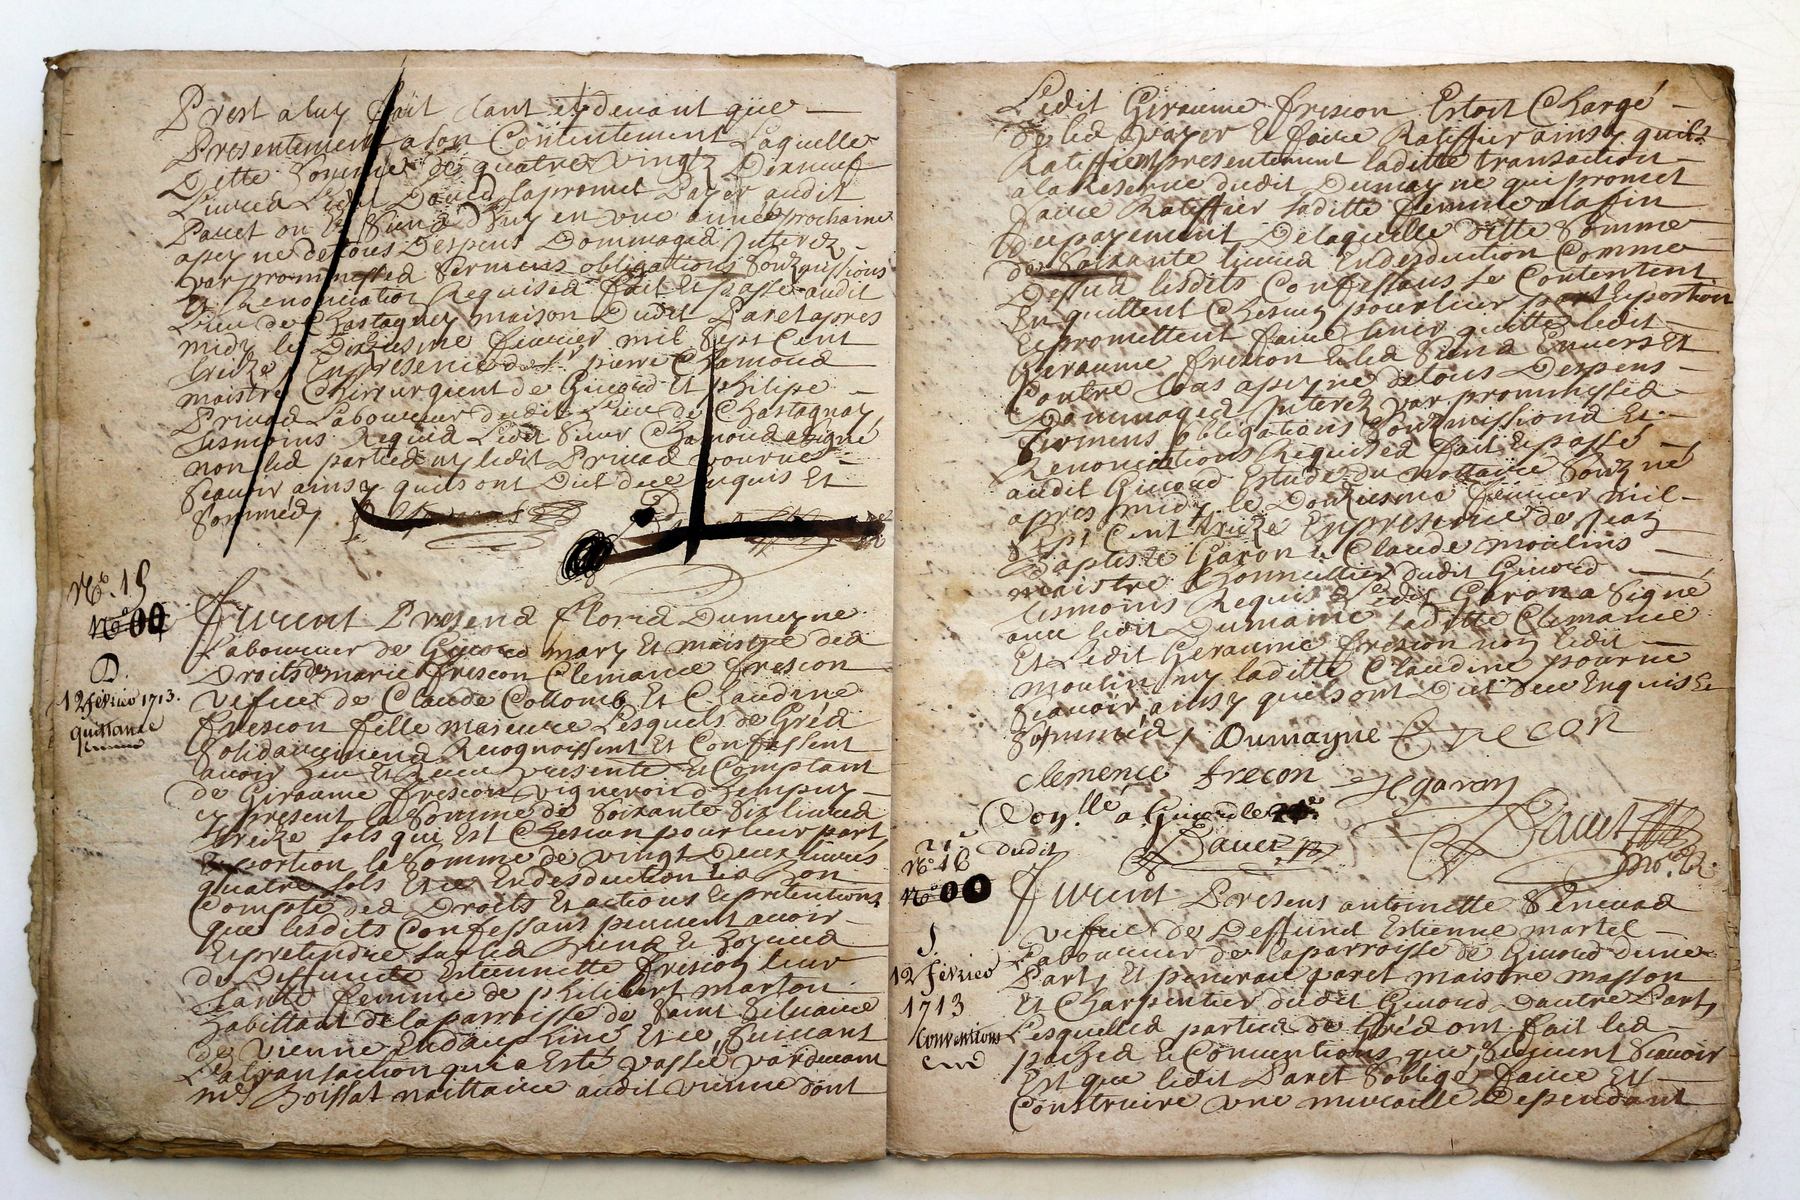 Prest a luy fait tant cydevant que
Presentement a son Contentement Laquelle
Ditte Somme de quatre vingtz Dixneuf
Livres Ledit David sa promet Payer audit
Pauet ou És Siens d'huy en une année prochaine
a peyne de tous Despens Dommages Interez
par promesses Sermens obligations Soubmissions
Et Renonciation Requises fait et passé audit
Lieu de Chastagnay maison Dudit Paret apres
midy le Dixiesme feurier mil Sept Cent
treize En presence de Sr. pierre Chamoud
maistre Chirurgient de Giuord Et philipe
Privad Laboureur dudit Lieu de Chastagnay
tesmoins Requis Ledit Sieur Chamoud a Signé
non les parties ny ledit Privad pour ne
Scauoir ainsy quils ont Dit de ce enquis Et
Sommés
No. 15
No 00
D.
12 février 1713.
quittance
Furent Presens Floris Dumayne
Laboureur de Giuord mary Et maistre des
Droits de marie frescon Clemance frescon
vefue de Claude Collomb Et Claudine
frescon fille majeure Lesquels de Gréd
Solidairement Recognoissent Et Confessent
auoir heu Et Receu presente et Comptant
de Giraume frescon vigneron d'Zempuy
cy present la Somme de Soixante Six liures
treize Sols qui Est Chescun pour leur part
Et portion la Somme de vingt Deux liures
quatre Sols Et ce En desduction Et a Bon
Compte des Droits Et actions Et pretentions
que lesdits Confessans peuuent auoir
Et pretendre sur les Biens Et hoyries
de Deffuncte Estiennette frescon leur
tante femme de philibert marton
habittant de la parroisse de Saint Siluaire
de vienne En dauphiné Et ce, Suiuant
La transaction qui a Esté passée par deuant
me Boissat nottaire audit vienne dont
Ledit Giraume frescon Estoit Chargé
de les payer Et faire Ratiffier ainsy quils
Ratiffient presentement laditte transaction
a la Reserue dudit Dumayne qui promet
faire Ratiffier laditte femme a la fin
du payement De laquelle ditte Somme
de Soixante liures En desduction Comme
Dessus lesdits Confessans Se Contentent
En quittent Chescun pour leur part Et portion
Et promettent faire tenir quitte ledit
Geraume frescon Et les Siens Enuers Et
Contre tous a peyne de tous Despens
Dommages Interez par promesses
Sermens obligations Soubmissions Et
Renonciations Requises fait Et passé
audit Giuord Estude du nottaire Soubzné
apres midy le Douziesme feurier mil
Sept Cent treize En presence de Jean
Baptiste Garon Et Claude moulins
maistre Bonnettier dudit Giuord
tesmoins Requis Ledit Garon a Signé
auec ledit Dumaine laditte Clemance
Et Ledit Geraume frescon non ledit
moulin ny laditte Claudine pour ne
Scauoir ainsy quils ont Dit de ce Enquis Et
Sommés / Dumayne Frecon
clemence frecon Jegaron
Con.llé a Giuord le
dudit Pauet Pauet
No 16
No 00
S.
12 février
1713
Conventions
Furent Presens antoinette Seneuas
vefue de Deffunt Estienne martel
Laboureur de la parroisse de Giuord d'une
Part, Et paret maistre masson
Et Charpentier dudit Giuord Dautre Part,
Lesquelles parties de Gréd ont fait les
paches Et Conuentions que Suiuent Scauoir
Est que ledit Paret s'oblige faire Et
Construire une muraille Dependant